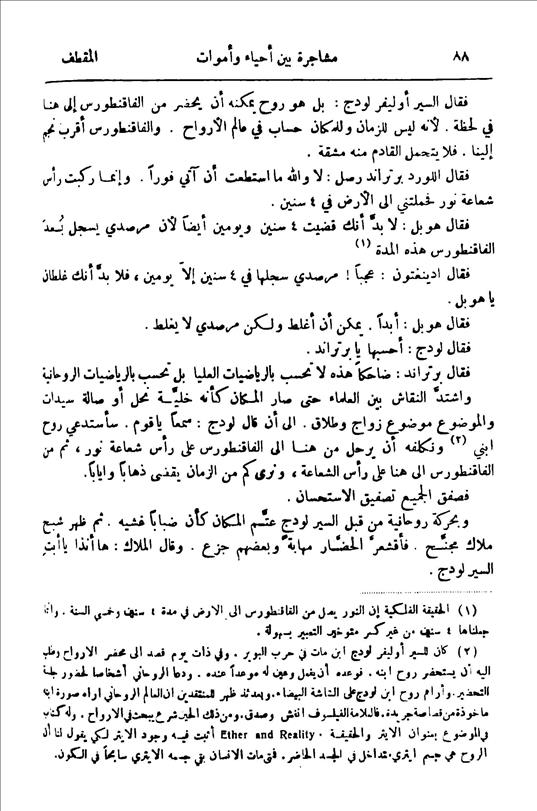 ٨٨ مشاجرة بين أحياء وأموات المقتطف
فقال السير أوليفر لودج : بل هو روح يمكنه أن يحضر من القنطورس إلى هنا
في لحظة . لأنه ليس للزمان وللمكان حساب في عالم الأرواح . والفاقنطورس أقرب نجم
إلينا . فلا يتحمل القادم منه مشقة .
فقال اللورد برتراند رصل : لا والله ما استطعت أن آتي فوراً . وإنما ركبت رأس
شعاعة نور فحملتني الى الأرض في ٤ سنين .
فقال هوبل : لا بدَّ أنك قضيت ٤ سنين ويومين أيضاً لأن مرصدي يسجل بُعد
الفاقنطورس هذه المدة (١)
فقال ادينغتون : عجباً ! مرصدي سجلها في ٤ سنين إلاّ يومين ، فلا بدَّ أنك غلطان
يا هوبل .
فقال هوبل : أبداً . يمكن أن أغلط ولكن مرصدي لا يغلط .
فقال لودج : أحسبها يا برتراند .
فقال برتراند : ضاحكاً هذه لا تحسب بالرياضيات العليا بل تحسب بالرياضيات الروحانية
واشتدَّ النقاش بين العلماء حتى صار المكان كأنه خليَّة نحل أو صالة سيدات
والموضوع موضوع زواج وطلاق . الى أن قال لودج : سمعاً ياقوم . سأستدعي روح
ابني (٢) ونكلفه أن يرحل من هنا الى الفاقنطورس على رأس شعاعة نور ، ثم من
الفاقنطورس الى هنا على رأس الشعاعة ، ونرى كم من الزمان يقضى ذهاباً واياباً.
فصفق الجميع تصفيق الاستحسان .
وبحركة روحانية من قبل السير لودج عتَّم المكان كأن ضباباً غشيه . ثم ظهر شبح
ملاك مجنَّح . فأقشعرَّ الحضَّار مهابةً وبعضهم جزع . وقال الملاك : ها أنذا يا أبتِ
السير لودج .
(١) الحقيقة الفلكية إن النور يصل من الفاقنطورس الى الارض في مدة ٤ سنين وخمسي السنة . وانا
جعلناها ٤ سنين من غير كسر متوخين التعبير بسهولة .
(٢) كان للسير أوليفر لودج ابن مات في حرب البوير . وفي ذات يوم قصد الى محضر الارواح وطلب
اليه أن يستحضر روح ابنه . فوعده أن يفعل وعين له موعداً عنده . ودعا الروحاني أشخاصاً لحضور جلسة
التحضير . وأراهم روح ابن لودج على الشاشة البيضاء . وبعدئذ ظهر للمنتقدين ان العالم الروحاني اراه صورة ابنه
مأخوذة من قصاصة جريدة . فالعلامة الفيلسوف انغش وصدق . ومن ذلك الحين شرع يبحث في الارواح . وله كتاب
في الموضوع بعنوان الايتر والحقيقة Ether and Reality . أثبت فيه وجود الايتر لكي يقول لنا أن
الروح هي جسم ايتري متداخل في الجسد الحاضر . فمتى مات الانسان بقي جسمه الايتري سابحاً في الكون .